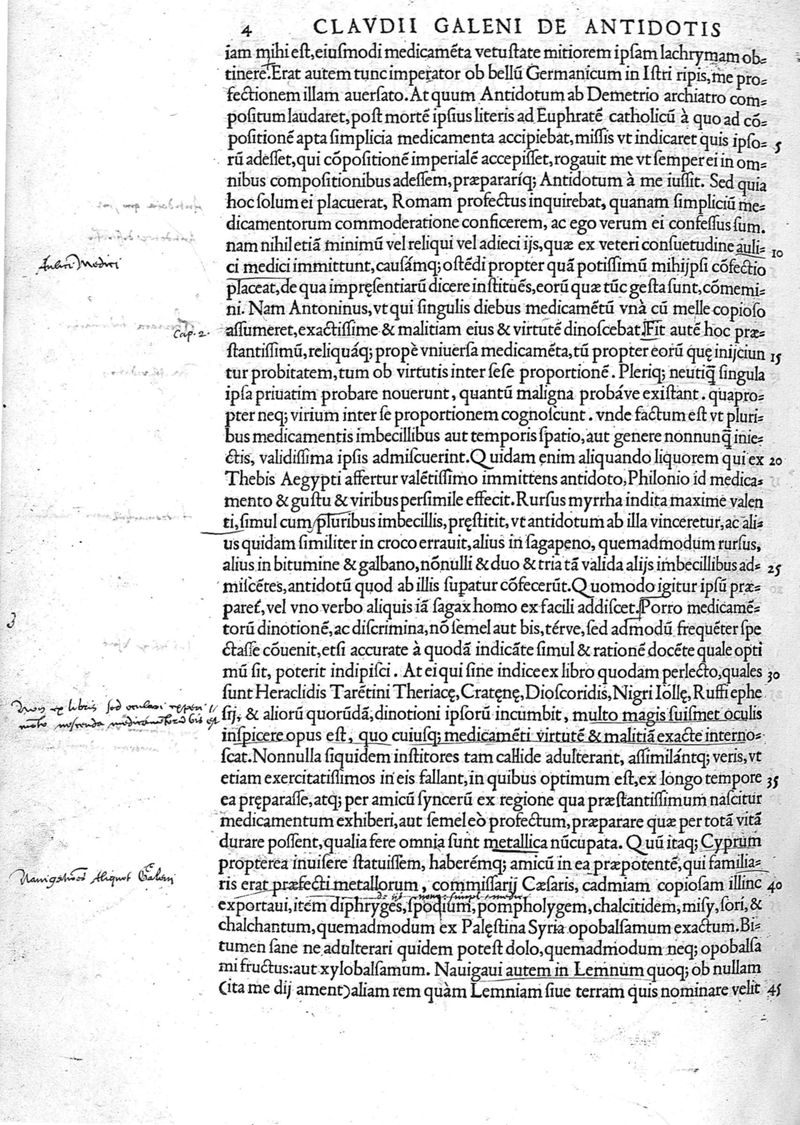 4 CLAVDII GALENI DE ANTIDOTIS
iam mihi est, eiuſmodi medicamẽta vetuſtate mitiorem ipſam lachrymam ob=
tinere. Erat autem tunc imperator ob bellũ Germanicum in Iſtri ripis, me pro=
fectionem illam auerſato. At quum Antidotum ab Demetrio archiatro com=
poſitum laudaret, poſt mortẽ ipſius literis ad Euphratẽ catholicũ à quo ad cõ=
poſitionẽ apta ſimplicia medicamenta accipiebat, miſſis vt indicaret quis ipſo= 5
rũ adeſſet, qui cõpoſitionẽ imperialẽ accepiſſet, rogauit me vt ſemper ei in om=
nibus compoſitionibus adeſſem, præpararíq; Antidotum à me iuſſit. Sed quia
hoc ſolum ei placuerat, Romam profectus inquirebat, quanam ſimpliciũ me=
dicamentorum commoderatione conficerem, ac ego verum ei confeſſus ſum.
nam nihil etiã minimũ vel reliqui vel adieci ijs, quæ ex veteri conſuetudine auli= 10
ci medici immittunt, cauſámq; oſtẽdi propter quã potiſſimũ mihi ipſi cõfectio
Aulici Medici
placeat, de qua impręſentiarũ dicere inſtituẽs, eorũ quæ tũc geſta ſunt, cõmemi=
ni. Nam Antoninus, vt qui ſingulis diebus medicamẽtũ vnà cũ melle copioſo
Cap. 2.
aſſumeret, exactiſſime & malitiam eius & virtutẽ dinoſcebat. Fit autẽ hoc præ=
ſtantiſſimũ, reliquáq; propè vniuerſa medicamẽta, tũ propter eorũ quę inijciun 15
tur probitatem, tum ob virtutis inter ſeſe proportionẽ. Pleriq; neutiq̃ ſingula
ipſa priuatim probare nouerunt, quantũ maligna probáve exiſtant. quapro=
pter neq; virium inter ſe proportionem cognoſcunt. vnde factum eſt vt pluri=
bus medicamentis imbecillibus aut temporis ſpatio, aut genere nonnunq̃ inie=
ctis, validiſſima ipſis admiſcuerint. Quidam enim aliquando liquorem qui ex 20
Thebis Aegypti affertur valẽtiſſimo immittens antidoto, Philonio id medica=
mento & guſtu & viribus perſimile effecit. Rurſus myrrha indita maxime valen
ti, ſimul cum pluribus imbecillis, pręſtitit, vt antidotum ab illa vinceretur, ac ali=
us quidam ſimiliter in croco errauit, alius in ſagapeno, quemadmodum rurſus,
alius in bitumine & galbano, nõnulli & duo & tria tã valida alijs imbecillibus ad= 25
miſcẽtes, antidotũ quod ab illis ſupatur cõfecerũt. Quomodo igitur ipſũ præ=
paret, vel vno verbo aliquis iã ſagax homo ex facili addiſcet. Porro medicamẽ=
3
torũ dinotionẽ, ac diſcrimina, nõ ſemel aut bis, térve, ſed admodũ frequẽter ſpe
ctaſſe cõuenit, etſi accurate à quodã indicãte ſimul & rationẽ docẽte quale opti
mũ ſit, poterit indipiſci. At ei qui ſine indice ex libro quodam perlecto, quales 30
ſunt Heraclidis Tarẽtini Theriacę, Cratęnę, Dioſcoridis, Nigri Iõllę, Ruffi ephe
Non ex libris ſed oculari
ſij, & aliorũ quorũdã, dinotioni ipſorũ incumbit, multo magis ſuiſmet oculis
inſpicere opus eſt, quo cuiuſq; medicamẽti virtutẽ & malitiã exacte interno=
ſcat. Nonnulla ſiquidem inſtitores tam callide adulterant, aſſimilántq; veris, vt
etiam exercitatiſſimos in eis fallant, in quibus optimum eſt, ex longo tempore 35
ea pręparaſſe, atq; per amicũ ſyncerũ ex regione qua præſtantiſſimum naſcitur
medicamentum exhiberi, aut ſemel eò profectum, præparare quæ per totã vitã
durare poſſent, qualia fere omnia ſunt metallica nũcupata. Quũ itaq; Cyprum
propterea inuiſere ſtatuiſſem, haberémq; amicũ in ea præpotentẽ, qui familia=
Aliquot Galeni
ris erat præfecti metallorum, commiſſarij Cæſaris, cadmiam copioſam illinc 40
exportaui, item diphryges, ſpodium, pompholygem, chalcitidem, miſy, ſori, &
chalchantum, quemadmodum ex Palęſtina Syria opobalſamum exactum. Bi=
tumen ſane ne adulterari quidem poteſt dolo, quemadmodum neq; opobalſa
mi fructus: aut xylobalſamum. Nauigaui autem in Lemnum quoq; ob nullam
(ita me dij ament) aliam rem quàm Lemniam ſiue terram quis nominare velit 45